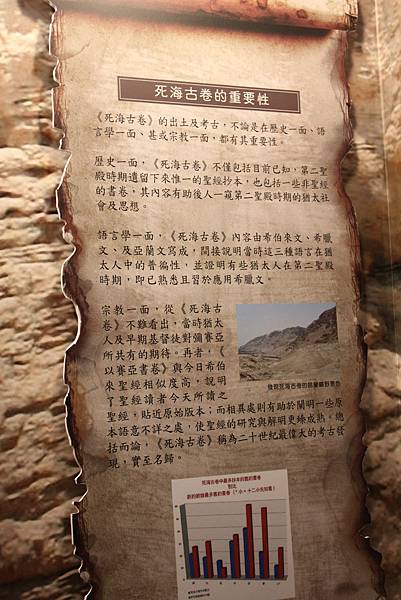 死海古卷的重要性
《死海古卷》的出土及考古，不論是在歷史一面、語
言學一面、甚或宗教一面，都有其重要性。
歷史一面，《死海古卷》不僅包括目前已知，第二聖
殿時期遺留下來惟一的聖經抄本，也包括一些非聖經
的書卷，其內容有助後人一窺第二聖殿時期的猶太社
會及思想。
語言學一面，《死海古卷》內容由希伯來文、希臘
文、及亞蘭文寫成，間接說明當時這三種語言在猶
太人中的普徧性，並證明有些猶太人在第二聖殿
時期，即已熟悉且習於應用希臘文。
宗教一面，從《死海古
卷》不難看出，當時猶太
人及早期基督徒對彌賽亞
所共有的期待。再者，《
以賽亞書卷》與今日希伯
來聖經相似度高，說明
了聖經讀者今天所讀之
聖經，貼近原始版本；而相異處則有助於闡明一些原
本語意不詳之處，使聖經的研究與解明更臻成熟。總
括而論，《死海古卷》稱為二十世紀最偉大的考古發
現，實至名歸。
發現死海古卷的昆蘭曠野景色
死海古卷中最多抄本的舊約書卷
對比
新約節錄最多舊約書卷（*小＝十二小先知書）